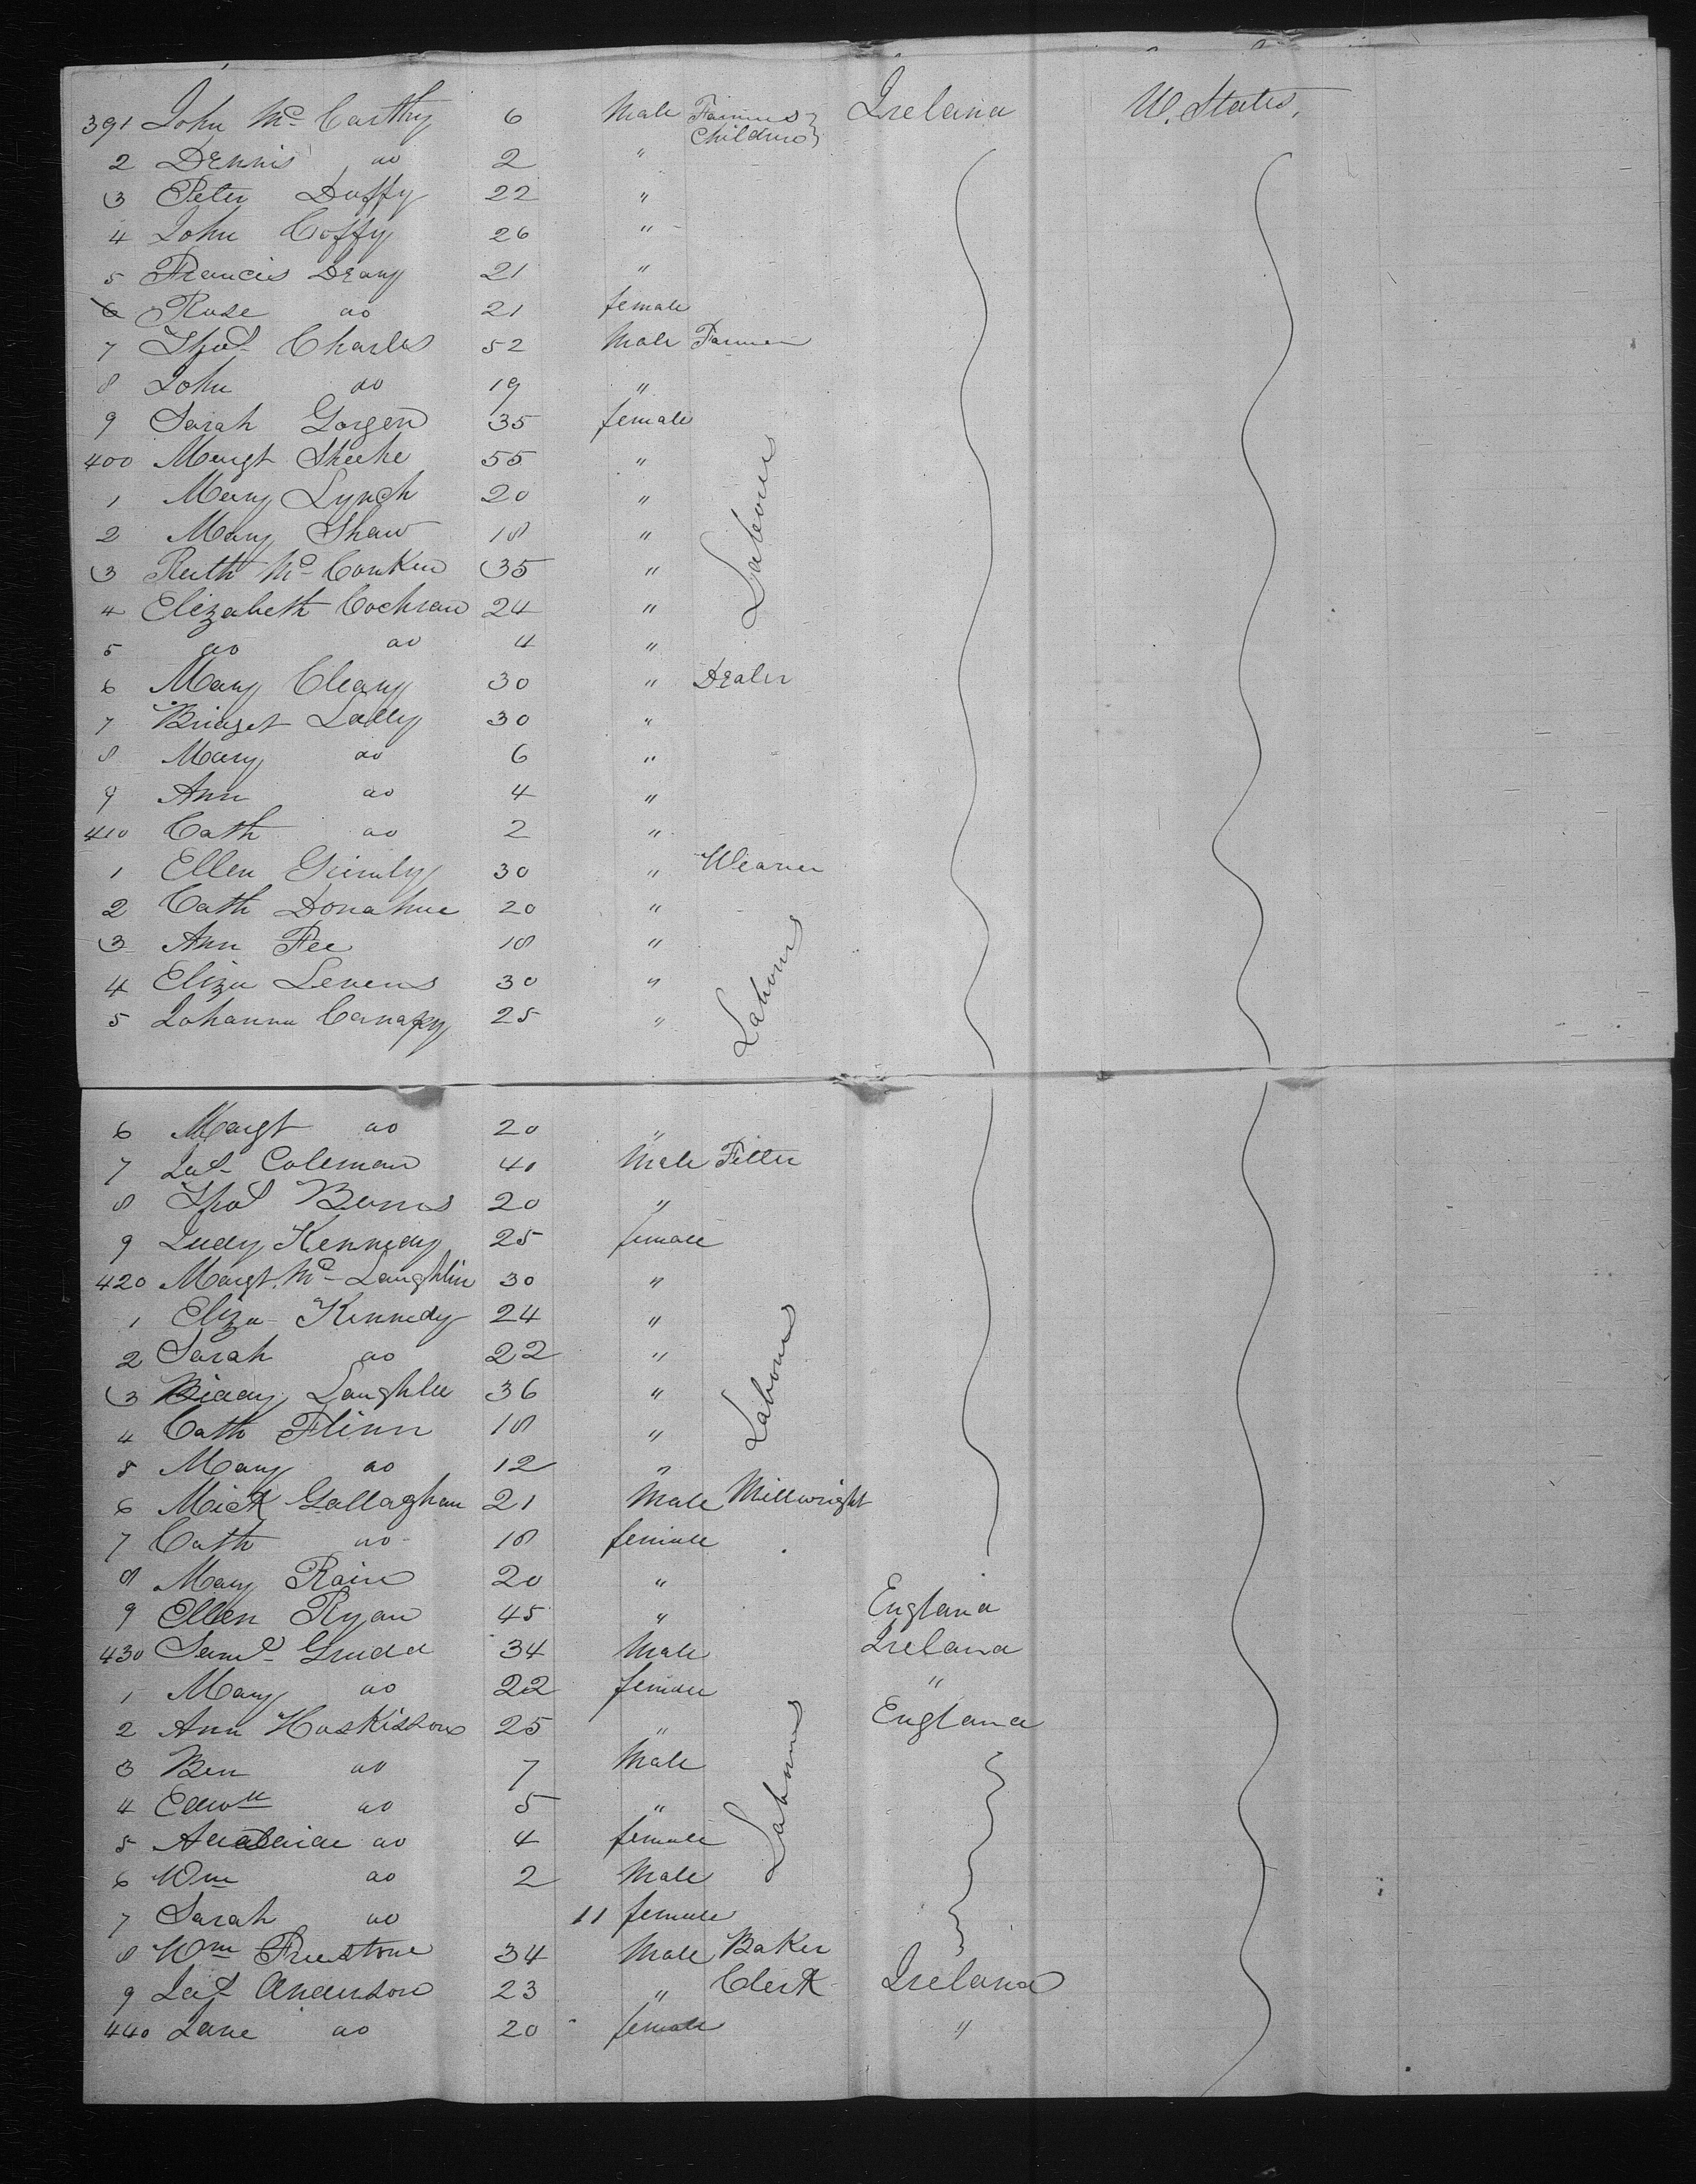 391 John McCarthy 6 Male Farmers Children Ireland U. States.
2 Dennis do 2 "
3 Peter Duffy 22 "
4 John Coffy 26 "
5 Francis Deany 21 "
6 Rose do 21 female
7 Thos Charles 52 Male Farmer
8 John do 19 "
9 Sarah Gorgen 35 female
400 Margt Sheehe 55 "
1 Mary Lynch 20 "
2 Mary Shaw 18 "
3 Ruth McConken 35 " Labourers
4 Elizabeth Cochran 24 "
5 do do 4 "
6 Mary Cleary 30 " Dealer
7 Bridget Lally 30 "
8 Mary do 6 "
9 Ann do 4 "
410 Cath do 2 "
1 Ellen 30 " Weaver
2 Cath Donahue 20 "
3 Ann Fee 18 "
4 Eliza Levens 30 " Labourers
5 Johanna 25 "
6 Margt do 20 "
7 Jas Coleman 40 Male Fitter
8 Thos Burns 20 "
9 Judy Kennedy 25 female
420 Margt McLaughlin 30 "
1 Eliza Kennedy 24 "
2 Sarah do 22 "
3 Biddy Laughlee 36 " Labourers
4 Cath Flinn 18 "
5 Mary do 12 "
6 Mick Gallaghan 21 Male Millwright
7 Cath do 18 female
8 Mary Rain 20 "
9 Ellen Ryan 45 " England
430 Saml 34 Male Ireland
1 Mary do 22 female "
2 Ann Hoskisson 25 " England
3 Ben do 7 Male
4 Edwd do 5 " Labourers
5 Adalaide do 4 female
6 Wm do 2 Male
7 Sarah do 11 female
8 Wm Freestone 34 Male Baker
9 Jas Anderson 23 " Clerk Ireland
440 Jane do 20 female "